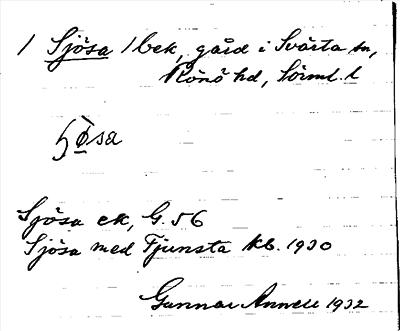 1 Sjösa 1 bek, gård i Svärta sn,
Rönö hd, Sörml. l
Sjösa ek, G. 56
Sjösa med Tjunsta kb. 1930
Gunnar Annell 1932